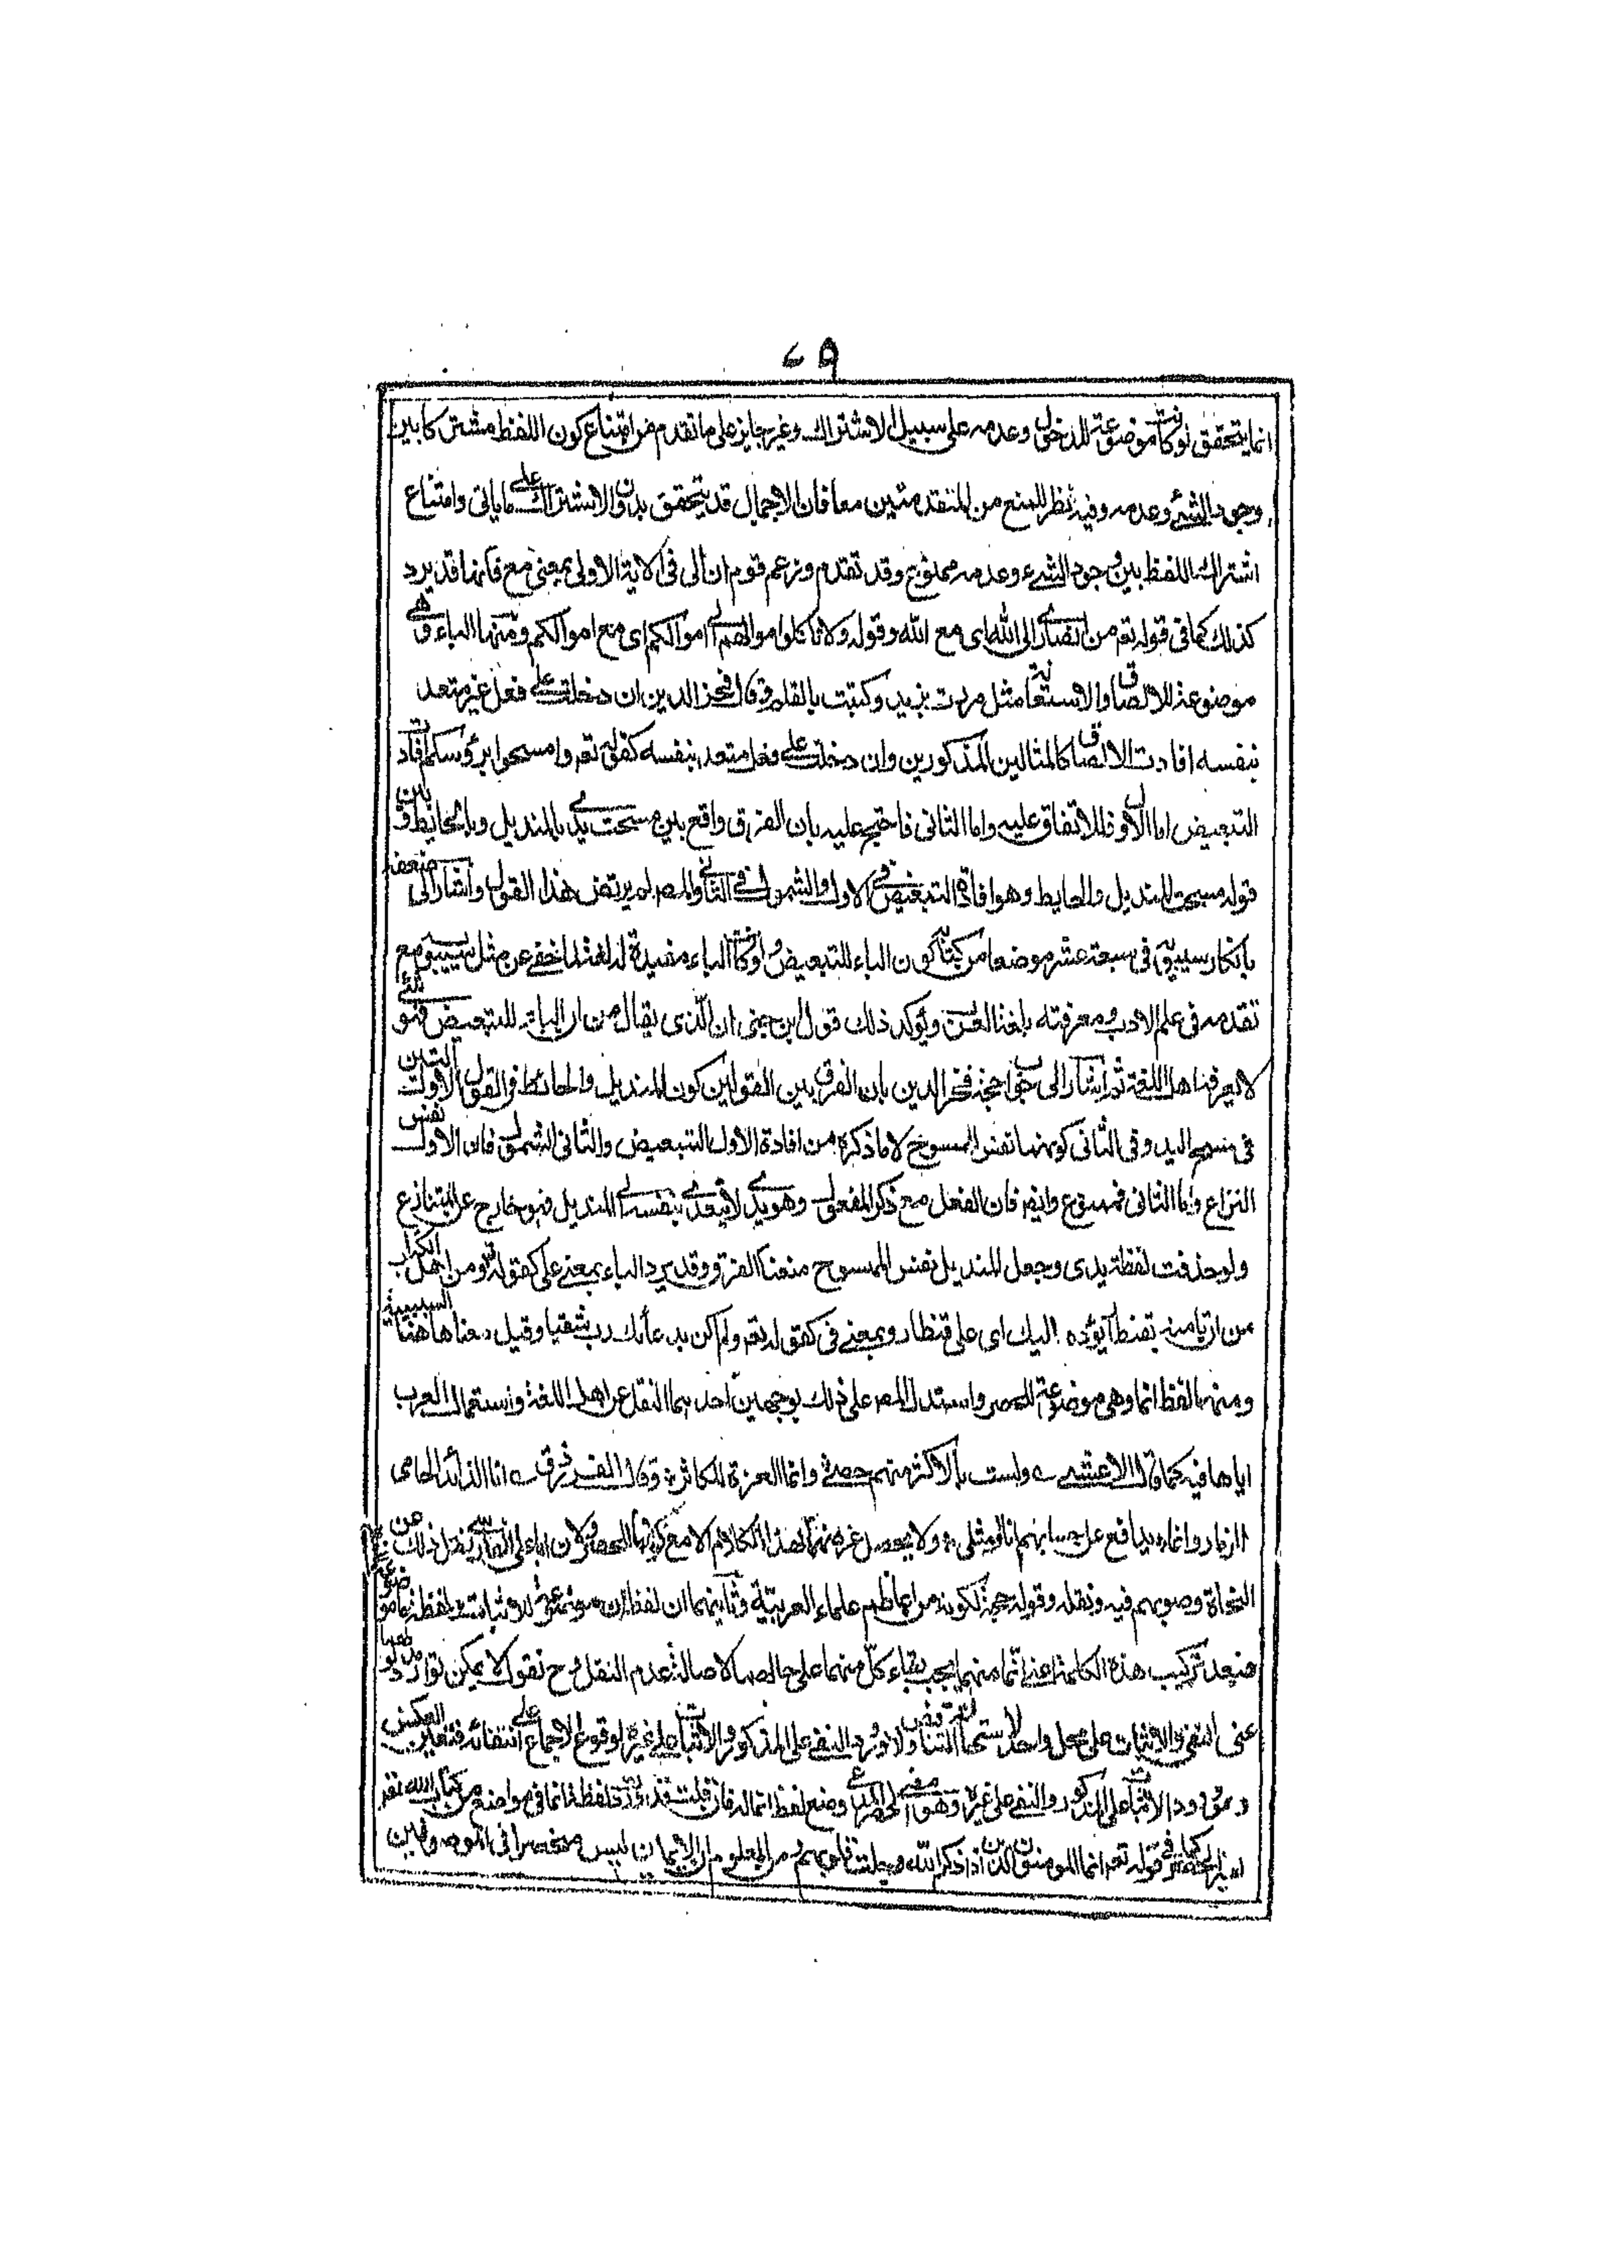 ٧٩
انما يتحقق لو كانت موضوعة للدخول وعدمه على سبيل الاشتراك وغير جايز على ما تقدم من امتناع كون اللفظ مشتركا بين
وجود الشئ وعدمه وفيه نظر للمنع من المتقدمتين معا فان الاجمال قد يتحقق بدون الاشتراك على ما ياتى وامتناع
اشتراك اللفظ بين وجود الشئ وعدمه ممنوع وقد تقدم وزعم قوم ان الى فى الاية الاولى بمعنى مع فانها قد يرد
كذلك كما فى قوله تعم من انصارى الى الله اى مع الله وقوله ولا تاكلوا اموالهم الى اموالكم اى مع اموالكم ومنها الباء وهى
موضوعة للالصاق والاستعانة مثل مررت بزيد وكتبت بالقلم وقال فخر الدين ان دخلت على فعل غير متعد
بنفسه افادت الالصاق كالمثالين المذكورين وان دخلت على فعل متعد بنفسه كقوله تعم وامسحوا برؤسكم افادت
التبعيض اما الاول فللاتفاق عليه واما الثانى فاحتج عليه بان الفرق واقع بين مسحت يدى بالمنديل وبالحايط وبين
قوله مسحت المنديل والحايط وهو افادة التبعيض فى الاول والشمول فى الثانى والمصـ لم يرتض هذا القول واشار الى ضعفه
بانكار سيبويه فى سبعة عشر موضعا من كتابه كون الباء للتبعيض ولو كانت الباء مفيدة له لغة لما خفى عن مثل سيبويه مع
تقدمه فى علم الادب ومعرفته بلغة العرب ويؤكد ذلك قول ابن جنى ان الذى يقال من ان الباء للتبعيض فهو شئ
لا يعرفه اهل اللغة ثم اشار الى جواب حجة فخر الدين بان الفرق بين القولين كون المنديل والحائط فى القول الاول التين
فى مسح اليد وفى الثانى كونهما نفس الممسوح لا ما ذكره من افادة الاول التبعيض والثانى الشمول فان الاول نفس
النزاع واما الثانى فممنوع وايضا فان الفعل مع ذكر المفعول وهو يدى لا يتعدى بنفسه الى المنديل فهو خارج عن المتنازع
ولو حذفت لفظة يدى وجعل المنديل نفس الممسوح منعنا الفرق وقد يرد الباء بمعنى على كقوله تعم ومن اهل الكتاب
من ان تامنه بقنطار يؤده اليك اى على قنطار وبمعنى فى كقوله تعم ولم اكن بدعائك رب شقيا وقيل معناها هنا السببية
ومنها لفظ انما وهى موضوعة للحصر واستدل المصـ على ذلك بوجهين احدهما النقل عن اهل اللغة واستعمال العرب
اياها فيه كما قال الاعشى ولست بالاكثر منهم حصى وانما العزة للكاثر وقال الفرزدق انا الذائد الحامى
الذمار وانما يدافع عن احسابهم انا او مثلى ولا يحصل غرضهما بهذا الكلام الا مع كونها للحصر ولان ابا على الفارسى نقل ذلك عن
النحاة وصوبهم فيه ونقله وقوله حجة لكونه من اعاظم علماء العربية وثانيهما ان لفظة ان موضوعة للاثبات ولفظة ما موضوعة
فبعد تركيب هذه الكلمة اعنى انما منهما يجب بقاء كل منهما على حالهما لاصالة عدم النقل وح نقول لا يمكن توارد
عنى النفى والاثبات على محل واحد لاستحالة التناقض ولا ورود النفى على المذكور والاثبات على غيره لوقوع الاجماع على انتفائه فتعين العكس
ورود الاثبات على المذكور والنفى على غيره وهو معنى الحصر وضع لفظ انما له فان قلت قد وردت لفظة انما فى مواضع من كتاب الله تعم
قوله تعم انما المؤمنون الذين اذا ذكر الله وجلت قلوبهم ومن المعلوم ان الايمان ليس منحصرا فى الموصوفين